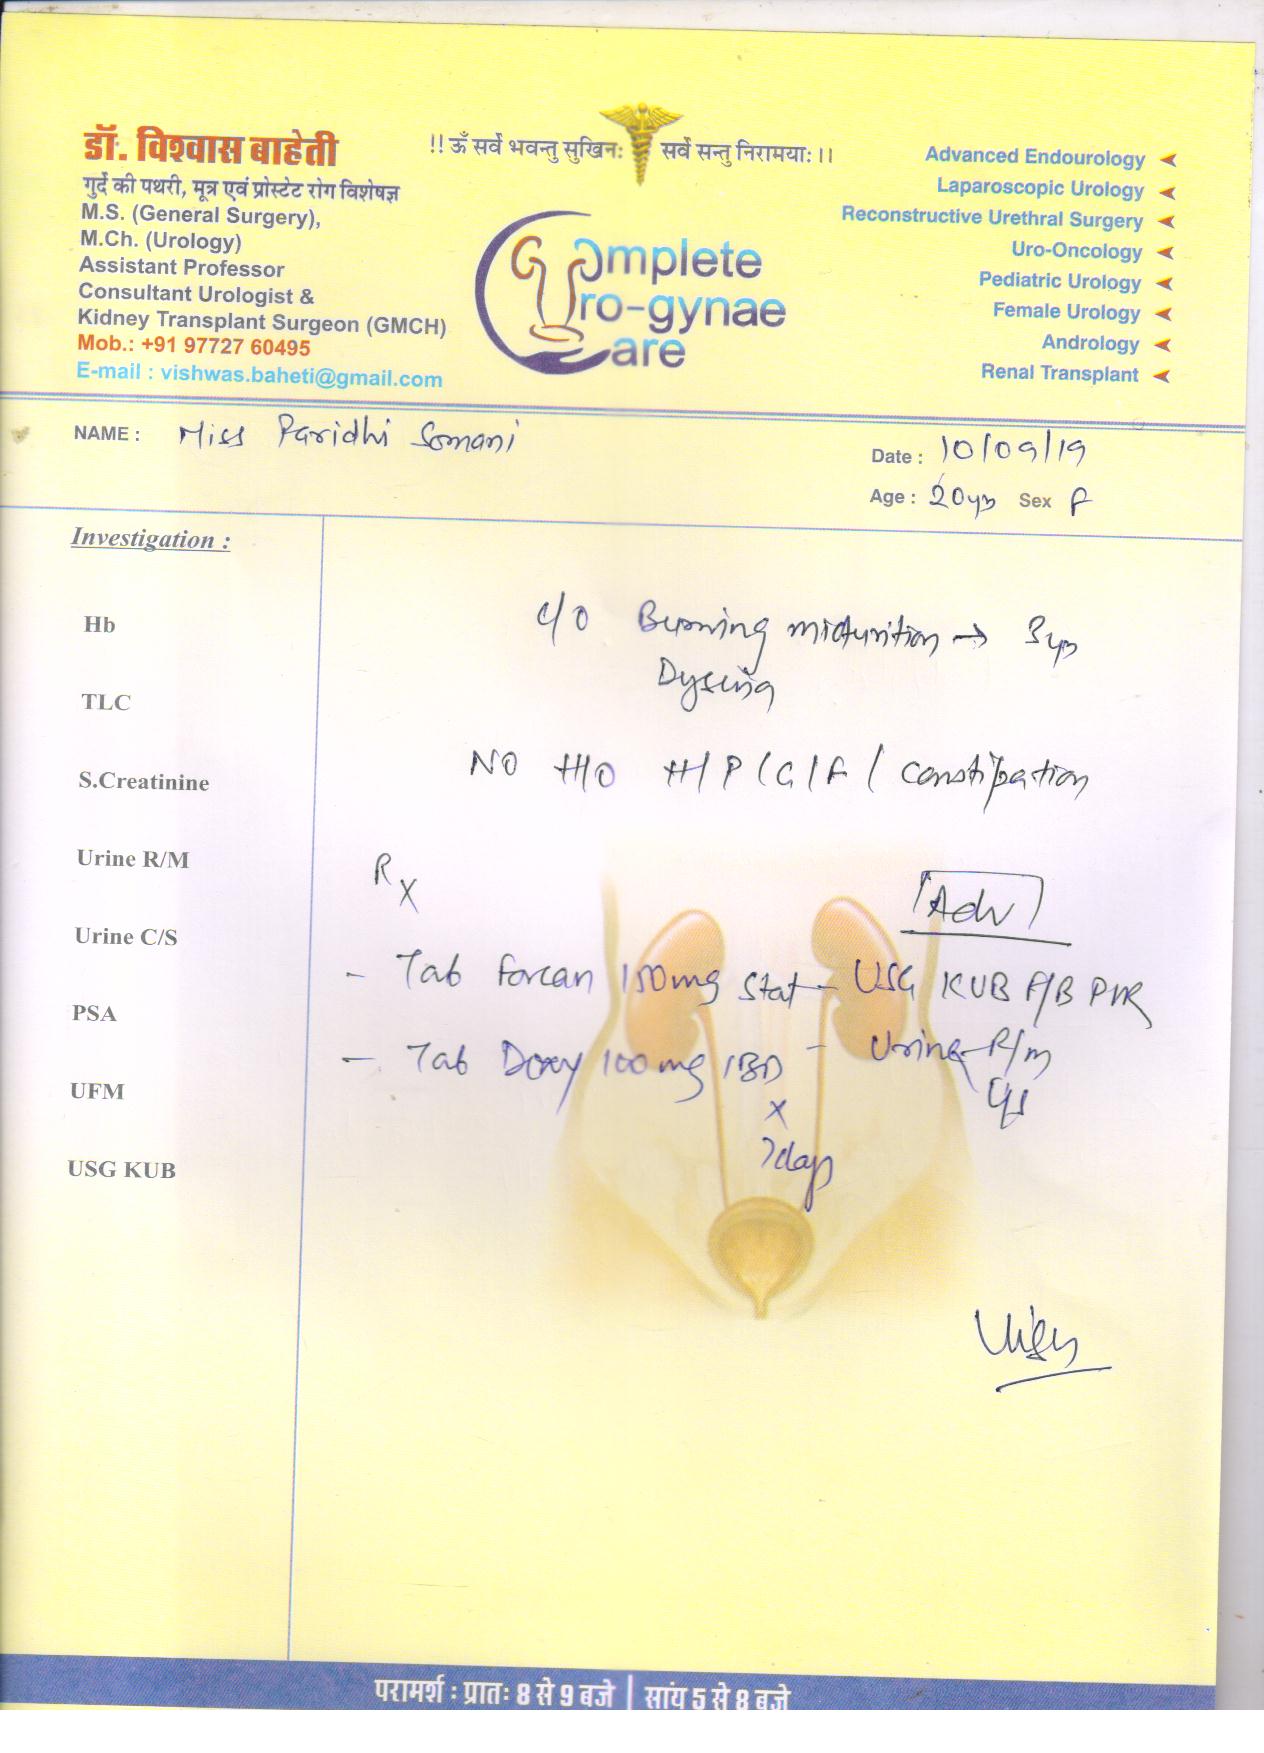 डॉ. विश्वास बाहेती
गुर्दे की पथरी, मूत्र एवं प्रोस्टेट रोग विशेषज्ञ
M.S. (General Surgery),
M.Ch. (Urology)
Assistant Professor
Consultant Urologist &
Kidney Transplant Surgeon (GMCH)
Mob.: +91 97727 60495
E-mail : vishwas.baheti@gmail.com
!! ॐ सर्वे भवन्तु सुखिनः सर्वे सन्तु निरामयाः ।।
Complete
Uro-gynae
Care
Advanced Endourology
Laparoscopic Urology
Reconstructive Urethral Surgery
Uro-Oncology
Pediatric Urology
Female Urology
Andrology
Renal Transplant
NAME : Miss Paridhi Somani
Date : 10/09/19
Age : 20yrs Sex F
Investigation :
Hb
TLC
S.Creatinine
Urine R/M
Urine C/S
PSA
UFM
USG KUB
C/O Burning micturition →
NO H/O H/P/G/F/ constipation
Rx
- Tab Forcan 150mg stat
- Tab Doxy 100mg 1BD
x
7days
Adv
- USG KUB F/B PVR
- Urine R/m
C/s
परामर्श : प्रातः 8 से 9 बजे | सांय 5 से 8 बजे